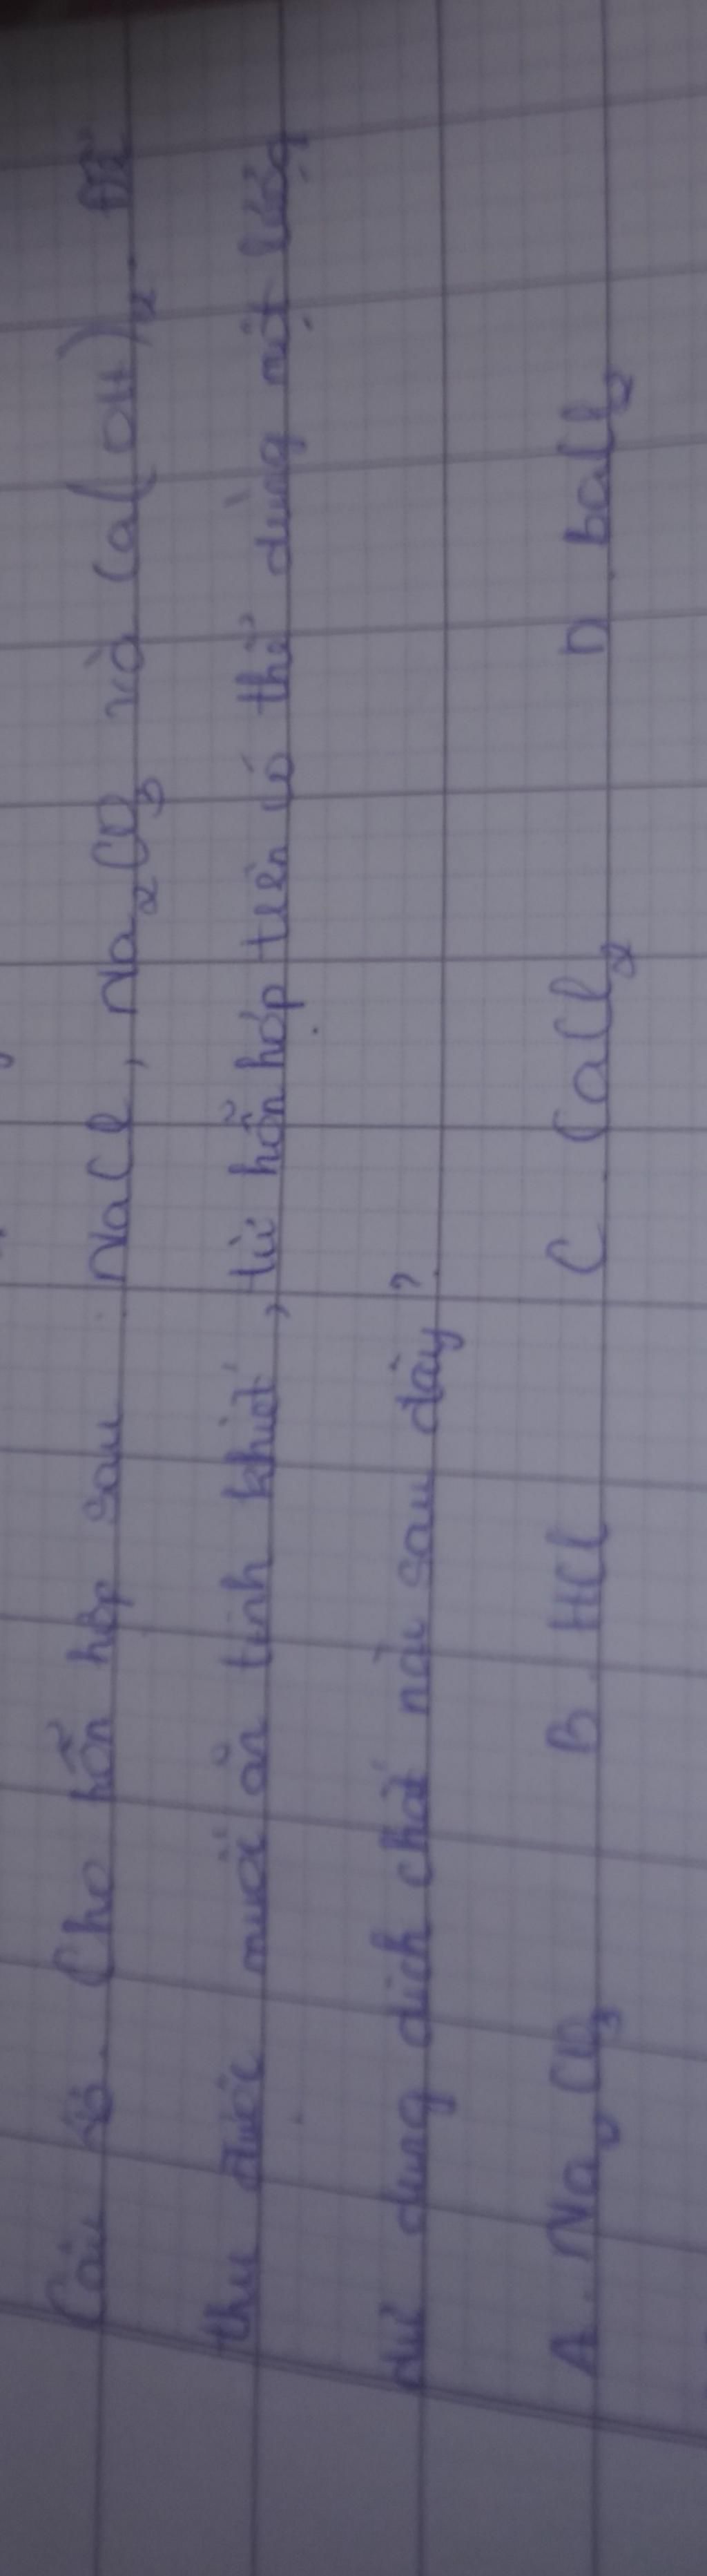 Câu. Cho hỗn hợp sau: NaCl, Na₂CO₃ và Ca(OH)₂. Để
thu được muối ăn tinh khiết, từ hỗn hợp trên có thể dùng một lượng
dư dung dịch chất nào sau đây?
A. Na₂CO₃ B. HCl C. CaCl₂ D. baCl₂